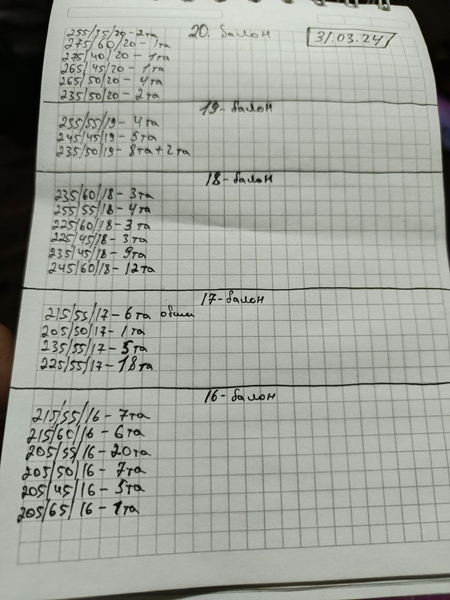 20. балон
31.03.24
255/35/20 - 2та
275/60/20 - 1та
275/40/20 - 1та
265/45/20 - 1та
265/50/20 - 4та
235/50/20 - 2та
19 - балон
235/55/19 - 4та
245/45/19 - 5та
235/50/19 - 8та + 2та
18 - балон
235/60/18 - 3та
255/55/18 - 4та
225/60/18 - 3та
225/45/18 - 3та
235/45/18 - 9та
245/60/18 - 12та
17 - балон
215/55/17 - 6та
205/50/17 - 1та
235/55/17 - 5та
225/55/17 - 18та
16 - балон
215/55/16 - 7та
215/60/16 - 6та
205/55/16 - 20та
205/50/16 - 7та
205/45/16 - 5та
205/65/16 - 1та